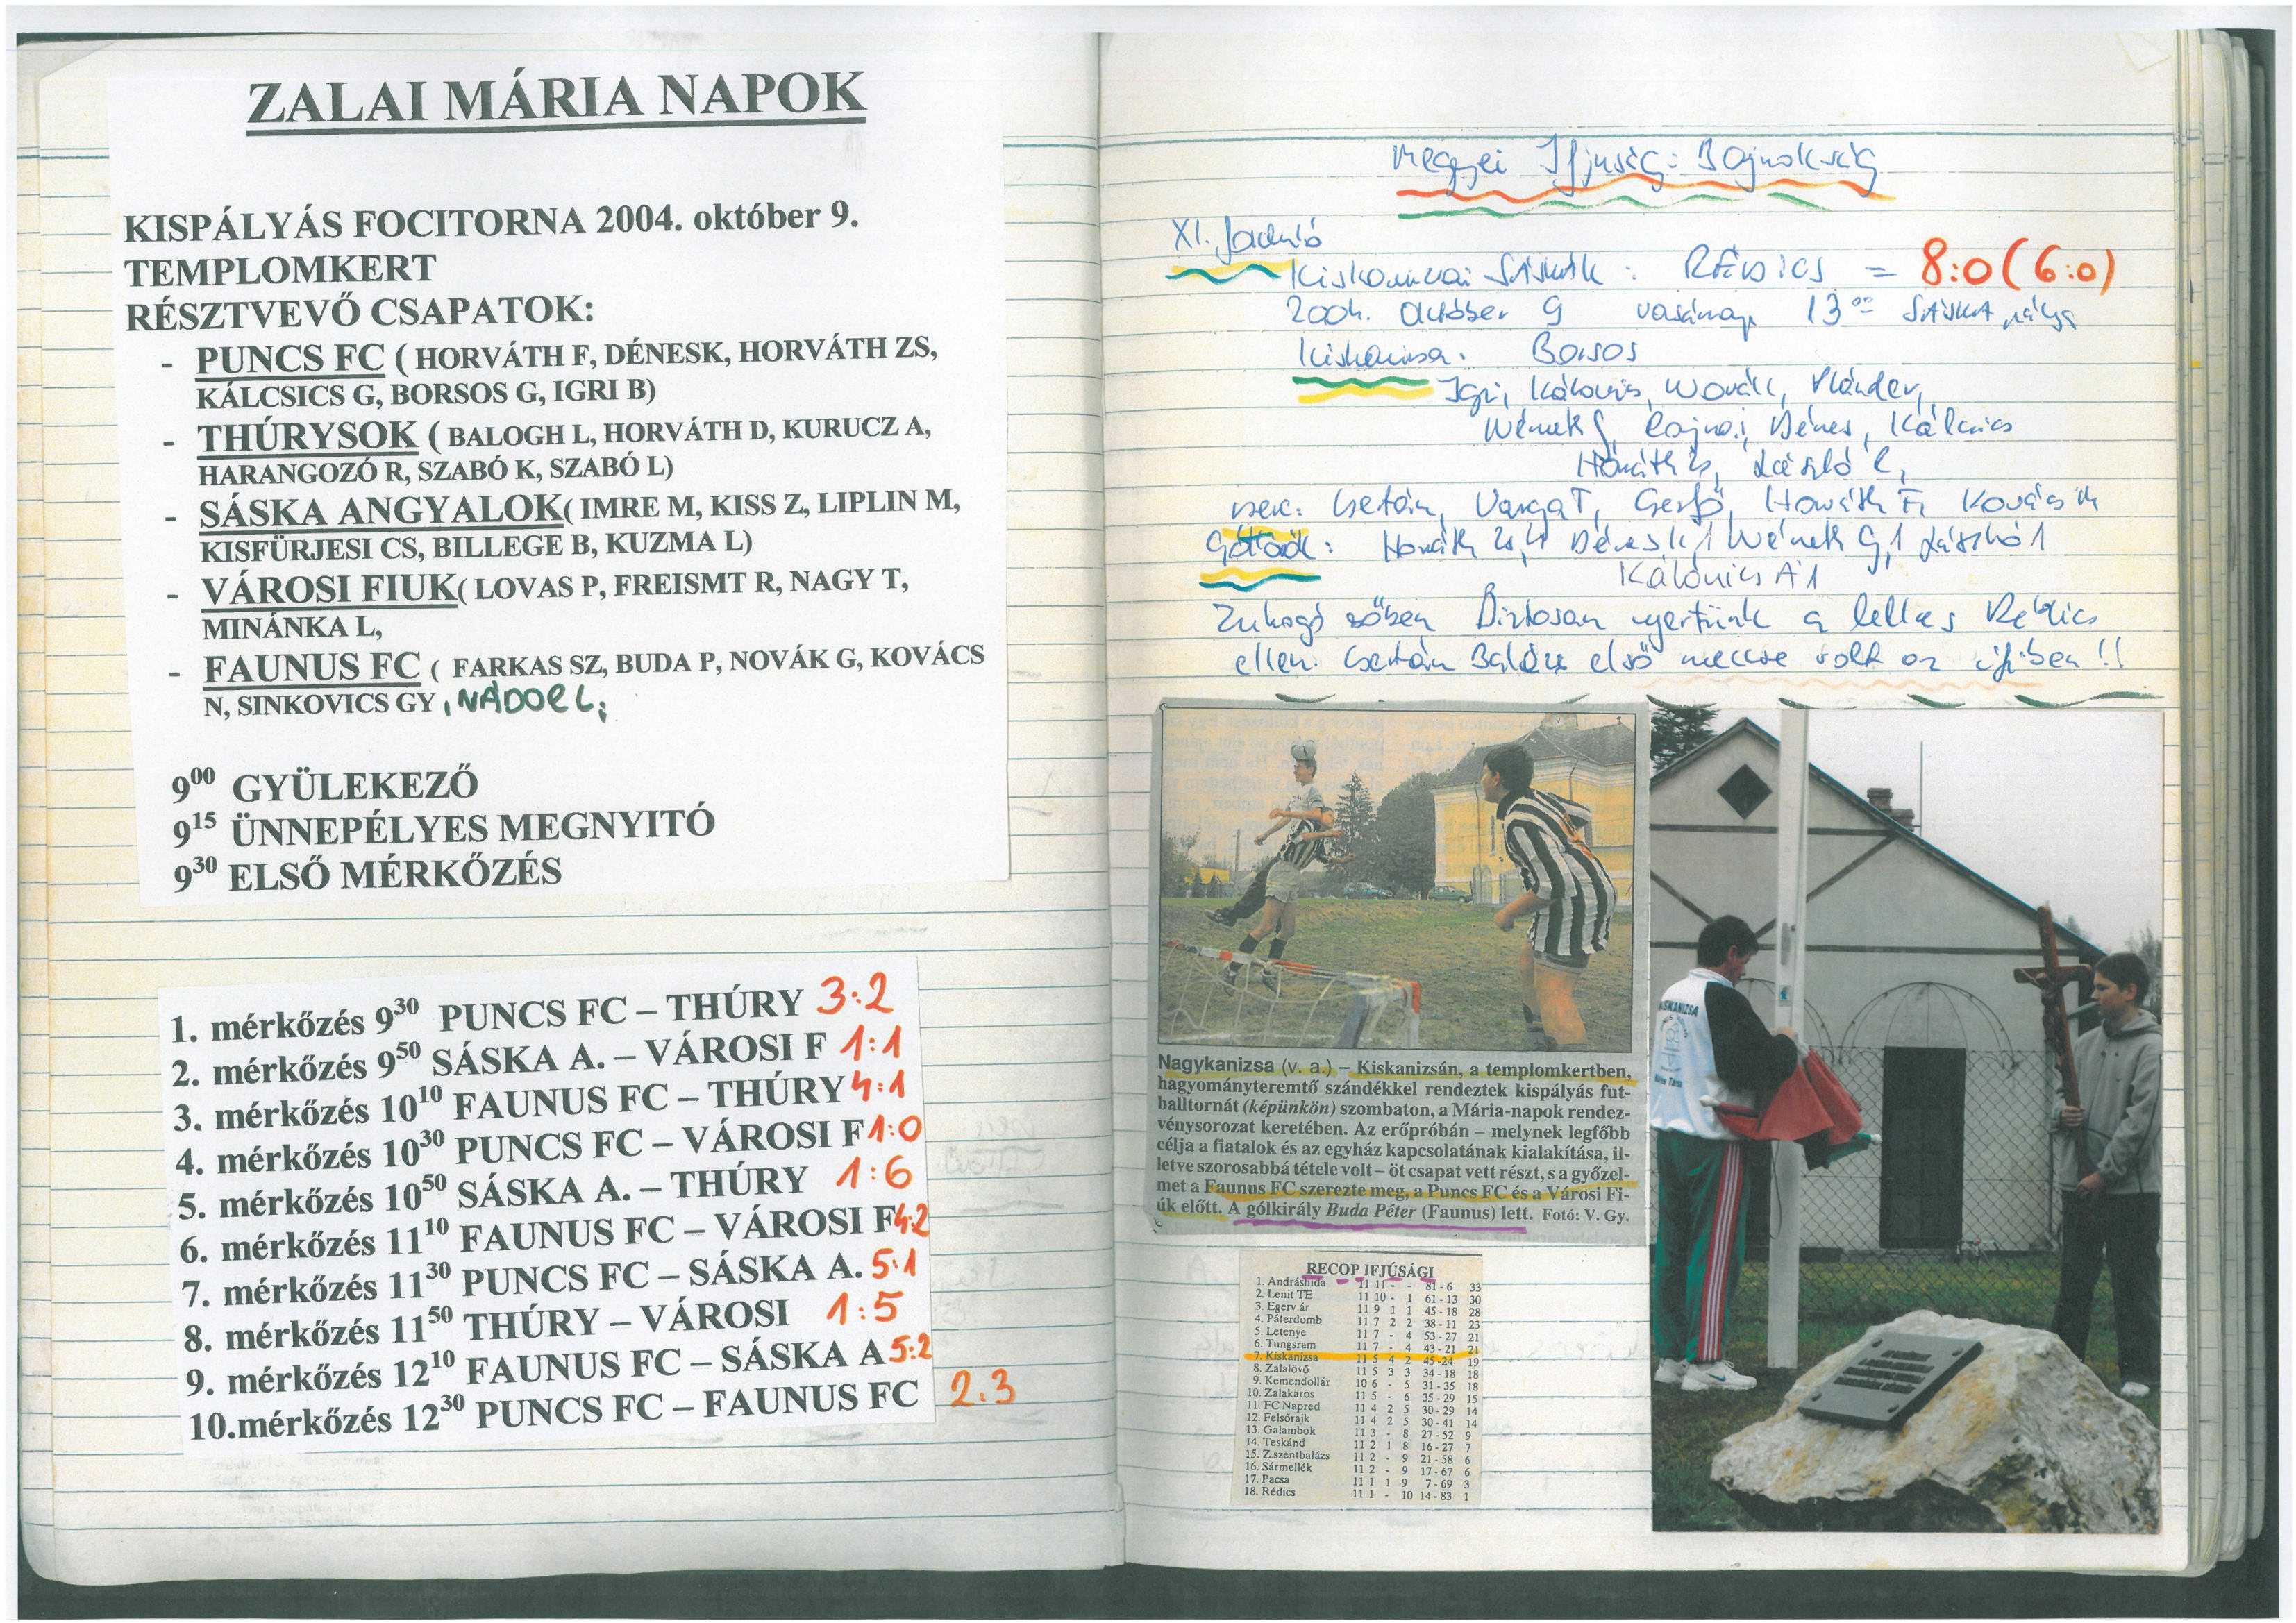 ZALAI MÁRIA NAPOK
KISPÁLYÁS FOCITORNA 2004. október 9.
TEMPLOMKERT
RÉSZTVEVŐ CSAPATOK:
- PUNCS FC ( HORVÁTH F, DÉNESK, HORVÁTH ZS,
KÁLCSICS G, BORSOS G, IGRI B)
- THÚRYSOK ( BALOGH L, HORVÁTH D, KURUCZ A,
HARANGOZÓ R, SZABÓ K, SZABÓ L)
- SÁSKA ANGYALOK( IMRE M, KISS Z, LIPLIN M,
KISFÜRJESI CS, BILLEGE B, KUZMA L)
- VÁROSI FIUK( LOVAS P, FREISMT R, NAGY T,
MINÁNKA L,
- FAUNUS FC ( FARKAS SZ, BUDA P, NOVÁK G, KOVÁCS
N, SINKOVICS GY, NÁDOR L;
9⁰⁰ GYÜLEKEZŐ
9¹⁵ ÜNNEPÉLYES MEGNYITÓ
9³⁰ ELSŐ MÉRKŐZÉS
1. mérkőzés 9³⁰ PUNCS FC – THÚRY 3:2
2. mérkőzés 9⁵⁰ SÁSKA A. – VÁROSI F 1:1
3. mérkőzés 10¹⁰ FAUNUS FC – THÚRY 4:1
4. mérkőzés 10³⁰ PUNCS FC – VÁROSI F 1:0
5. mérkőzés 10⁵⁰ SÁSKA A. – THÚRY 1:6
6. mérkőzés 11¹⁰ FAUNUS FC – VÁROSI F 4:2
7. mérkőzés 11³⁰ PUNCS FC – SÁSKA A. 5:1
8. mérkőzés 11⁵⁰ THÚRY – VÁROSI 1:5
9. mérkőzés 12¹⁰ FAUNUS FC – SÁSKA A 5:2
10.mérkőzés 12³⁰ PUNCS FC – FAUNUS FC 2:3
Megyei Ifjusági Bajnokság
XI. forduló
Kiskanizsai SÁSKÁK : RÉDICS = 8:0 (6:0)
2004. Október 9 vasárnap 13⁰⁰ SÁSKA pálya
Kiskanizsa: Borsos
Igri, Kálovics, Novák, Plánder,
Wének G, Rajnai, Dénes, Kálcsics
Horváth Zs, László R,
csere: Csetán, Varga T, Cserfő, Horváth F, Kovács N
Góllövők: Horváth Zs 4 Dénes K 1 Wének G 1 László 1
Kálovics Á 1
Zuhogó esőben Biztosan nyertünk a lelkes Rédics
ellen. Csetán Balázs első meccse volt az ifiben !!
Nagykanizsa (v. a.) – Kiskanizsán, a templomkertben,
hagyományteremtő szándékkel rendeztek kispályás fut-
balltornát (képünkön) szombaton, a Mária-napok rendez-
vénysorozat keretében. Az erőpróbán – melynek legfőbb
célja a fiatalok és az egyház kapcsolatának kialakítása, il-
letve szorosabbá tétele volt – öt csapat vett részt, s a győzel-
met a Faunus FC szerezte meg, a Puncs FC és a Városi Fi-
úk előtt. A gólkirály Buda Péter (Faunus) lett. Fotó: V. Gy.
RECOP IFJÚSÁGI
1. Andráshida 11 11 - - 81-6 33
2. Lenit TE 11 10 - 1 61-13 30
3. Egervár 11 9 1 1 45-18 28
4. Páterdomb 11 7 2 2 38-11 23
5. Letenye 11 7 - 4 53-27 21
6. Tungsram 11 7 - 4 43-21 21
7. Kiskanizsa 11 5 4 2 45-24 19
8. Zalalövő 11 5 3 3 34-18 18
9. Kemendollár 10 6 - 5 31-35 18
10. Zalakaros 11 5 - 6 35-29 15
11. FC Napred 11 4 2 5 30-29 14
12. Felsőrajk 11 4 2 5 30-41 14
13. Galambok 11 3 - 8 27-52 9
14. Teskánd 11 2 1 8 16-27 7
15. Z.szentbalázs 11 2 - 9 21-58 6
16. Sármellék 11 2 - 9 17-67 6
17. Pacsa 11 1 1 9 7-69 3
18. Rédics 11 1 - 10 14-83 1
KISKANIZSA